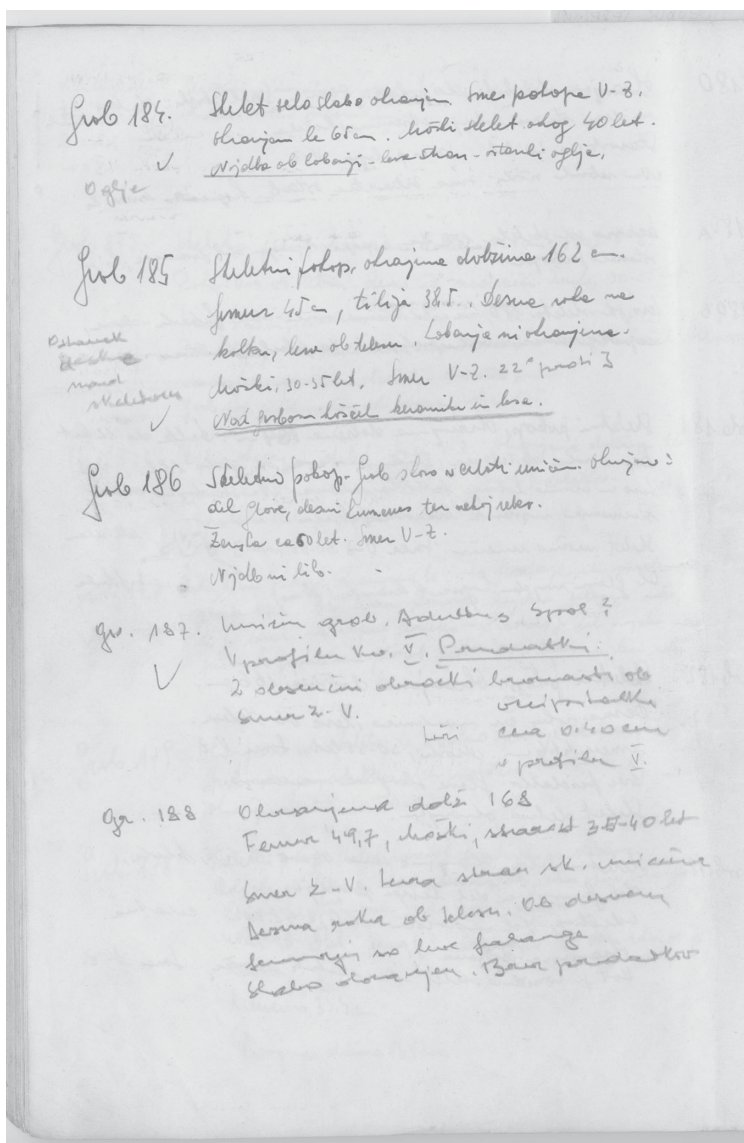 Grob 184. Skelet zelo slabo ohranjen. Smer pokopa V-Z.
ohranjen le 65 cm. Moški skelet okog 40 let.
✓ Najdba ob lobanji - leva stran - ostanki oglja.
Oglje
Grob 185 Skeletni pokop, ohranjena dolžina 162 cm.
femur 45 cm, tibija 38.5. Desna roka na
kolku, leva ob telesu. Lobanja ni ohranjena.
Moški, 30-35 let. Smer V-Z. 22° proti J
Nad grobom košček keramike in lesa.
Ostanek
deske
nad
skeletom
✓
Grob 186 Skeletni pokop. Grob skoro v celoti uničen. Ohranjeno:
del glave, desni humerus ter nekaj reber.
Ženska ca 50 let. Smer V-Z.
Najdb ni bilo.
gr. 187. Uničen grob. Adultus, Spol?
V profilu kv. V. Pridatki:
✓ 2 obsenčni obročki bronasti ob
Smer Z-V. occipitalki
Leži cca 0.40 cm
v profilu V.
gr. 188 Ohranjena dolž 168
Femur 49,7, Moški, starost 35-40 let
Smer Z-V. Leva stran sk. uničena
Desna roka ob telesu. Ob desnem
femurju so leve falange
Slabo ohranjen. Brez pridatkov